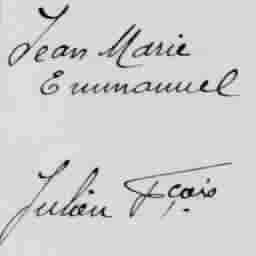 Jean Marie
Emmanuel
Julien Fçois